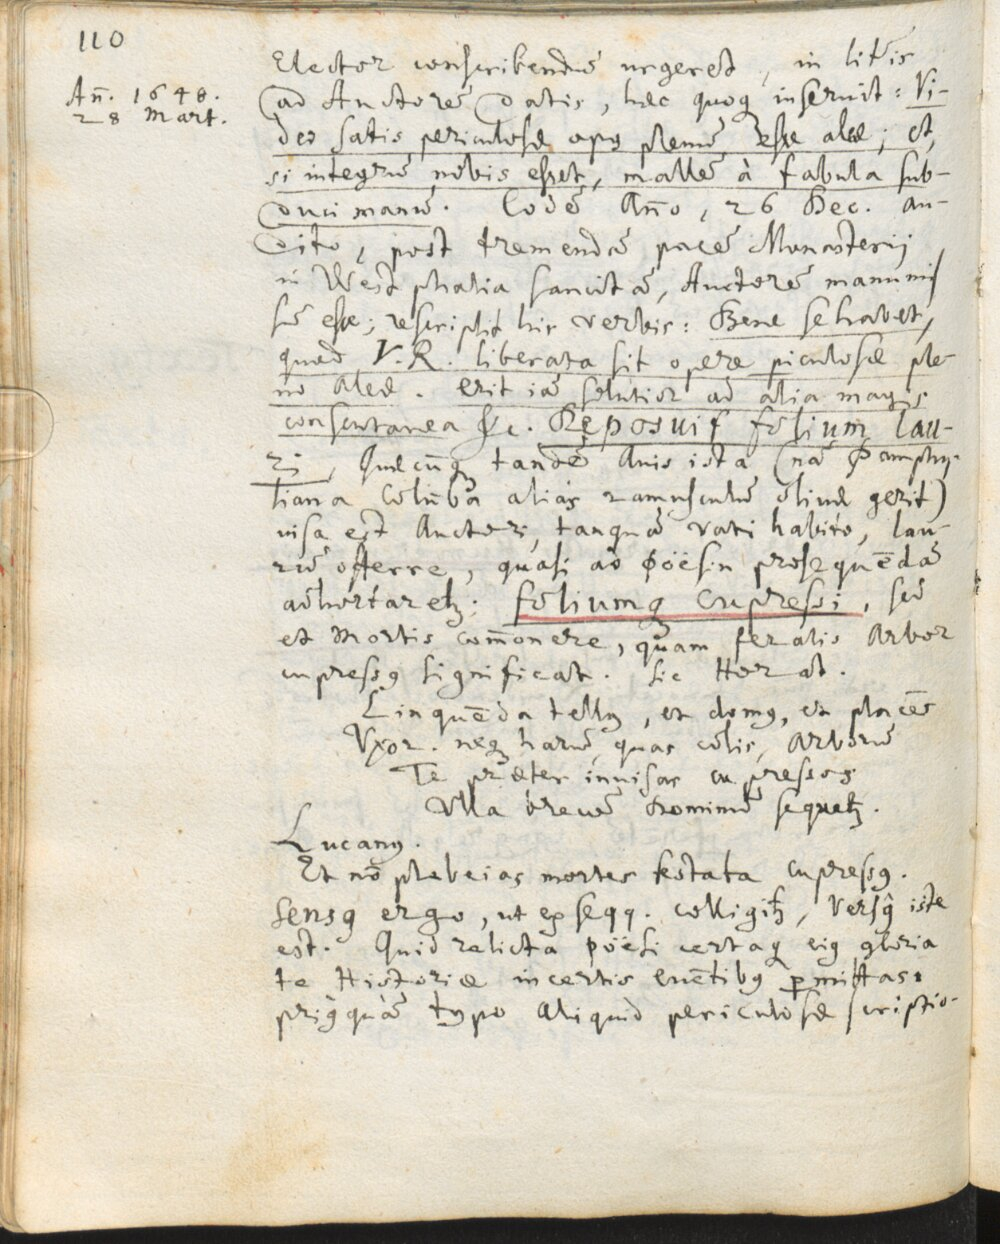 110
Añ. 1648.
28 Mart.
Elector conscribendũ urgeret, in litĩs
ad Auctorẽ datis, hæc quoq inseruit: Vi-
deo satis periculosæ opg plenũ esse aleæ; et,
si integrũ nobis esset, mallẽ à fabula sub-
duci manũ. Eodẽ Añno, 26 Dec. au-
dito, post tremendã pacẽ Monasterij
in Westphalia sancitã, Auctorẽ manumis
sũ esse; rescripsit his verbis: Bene se habet,
quod V.R. liberata sit opere piculosæ ple-
no aleæ. erit iã solutior ad alia magis
consentanea &c. Reposuit folium lau-
ri, Quæcũq tandẽ Avis ista (nã Pamphy-
liana Colũba aliàs ramusculũ olivæ gerit)
visa est Auctori, tanquã vati habito, lau-
rũ offerre, quasi ad Poësin prosequẽdã
adhortaretʒ: foliumq cupressi, seu
et Mortis com̃onere, quam feralis Arbor
cupressg significat. Sic Horat.
Linquẽda tellg, et domg, et placẽs
Vxor. neq harũ, quas colis, Arborũ
Te præter invisas cupressos
Vlla brevẽ Dominũ sequetʒ.
Lucang.
Et nõ plebeias mortes testata cupressg.
Sensg ergo, ut ex seqq. colligitʒ, versg̃ iste
est. Quid relicta Poësi certaq eig gloria
te Historiæ incertis evẽtibg pmittas,
prigquã typo aliquid periculosæ scriptio-